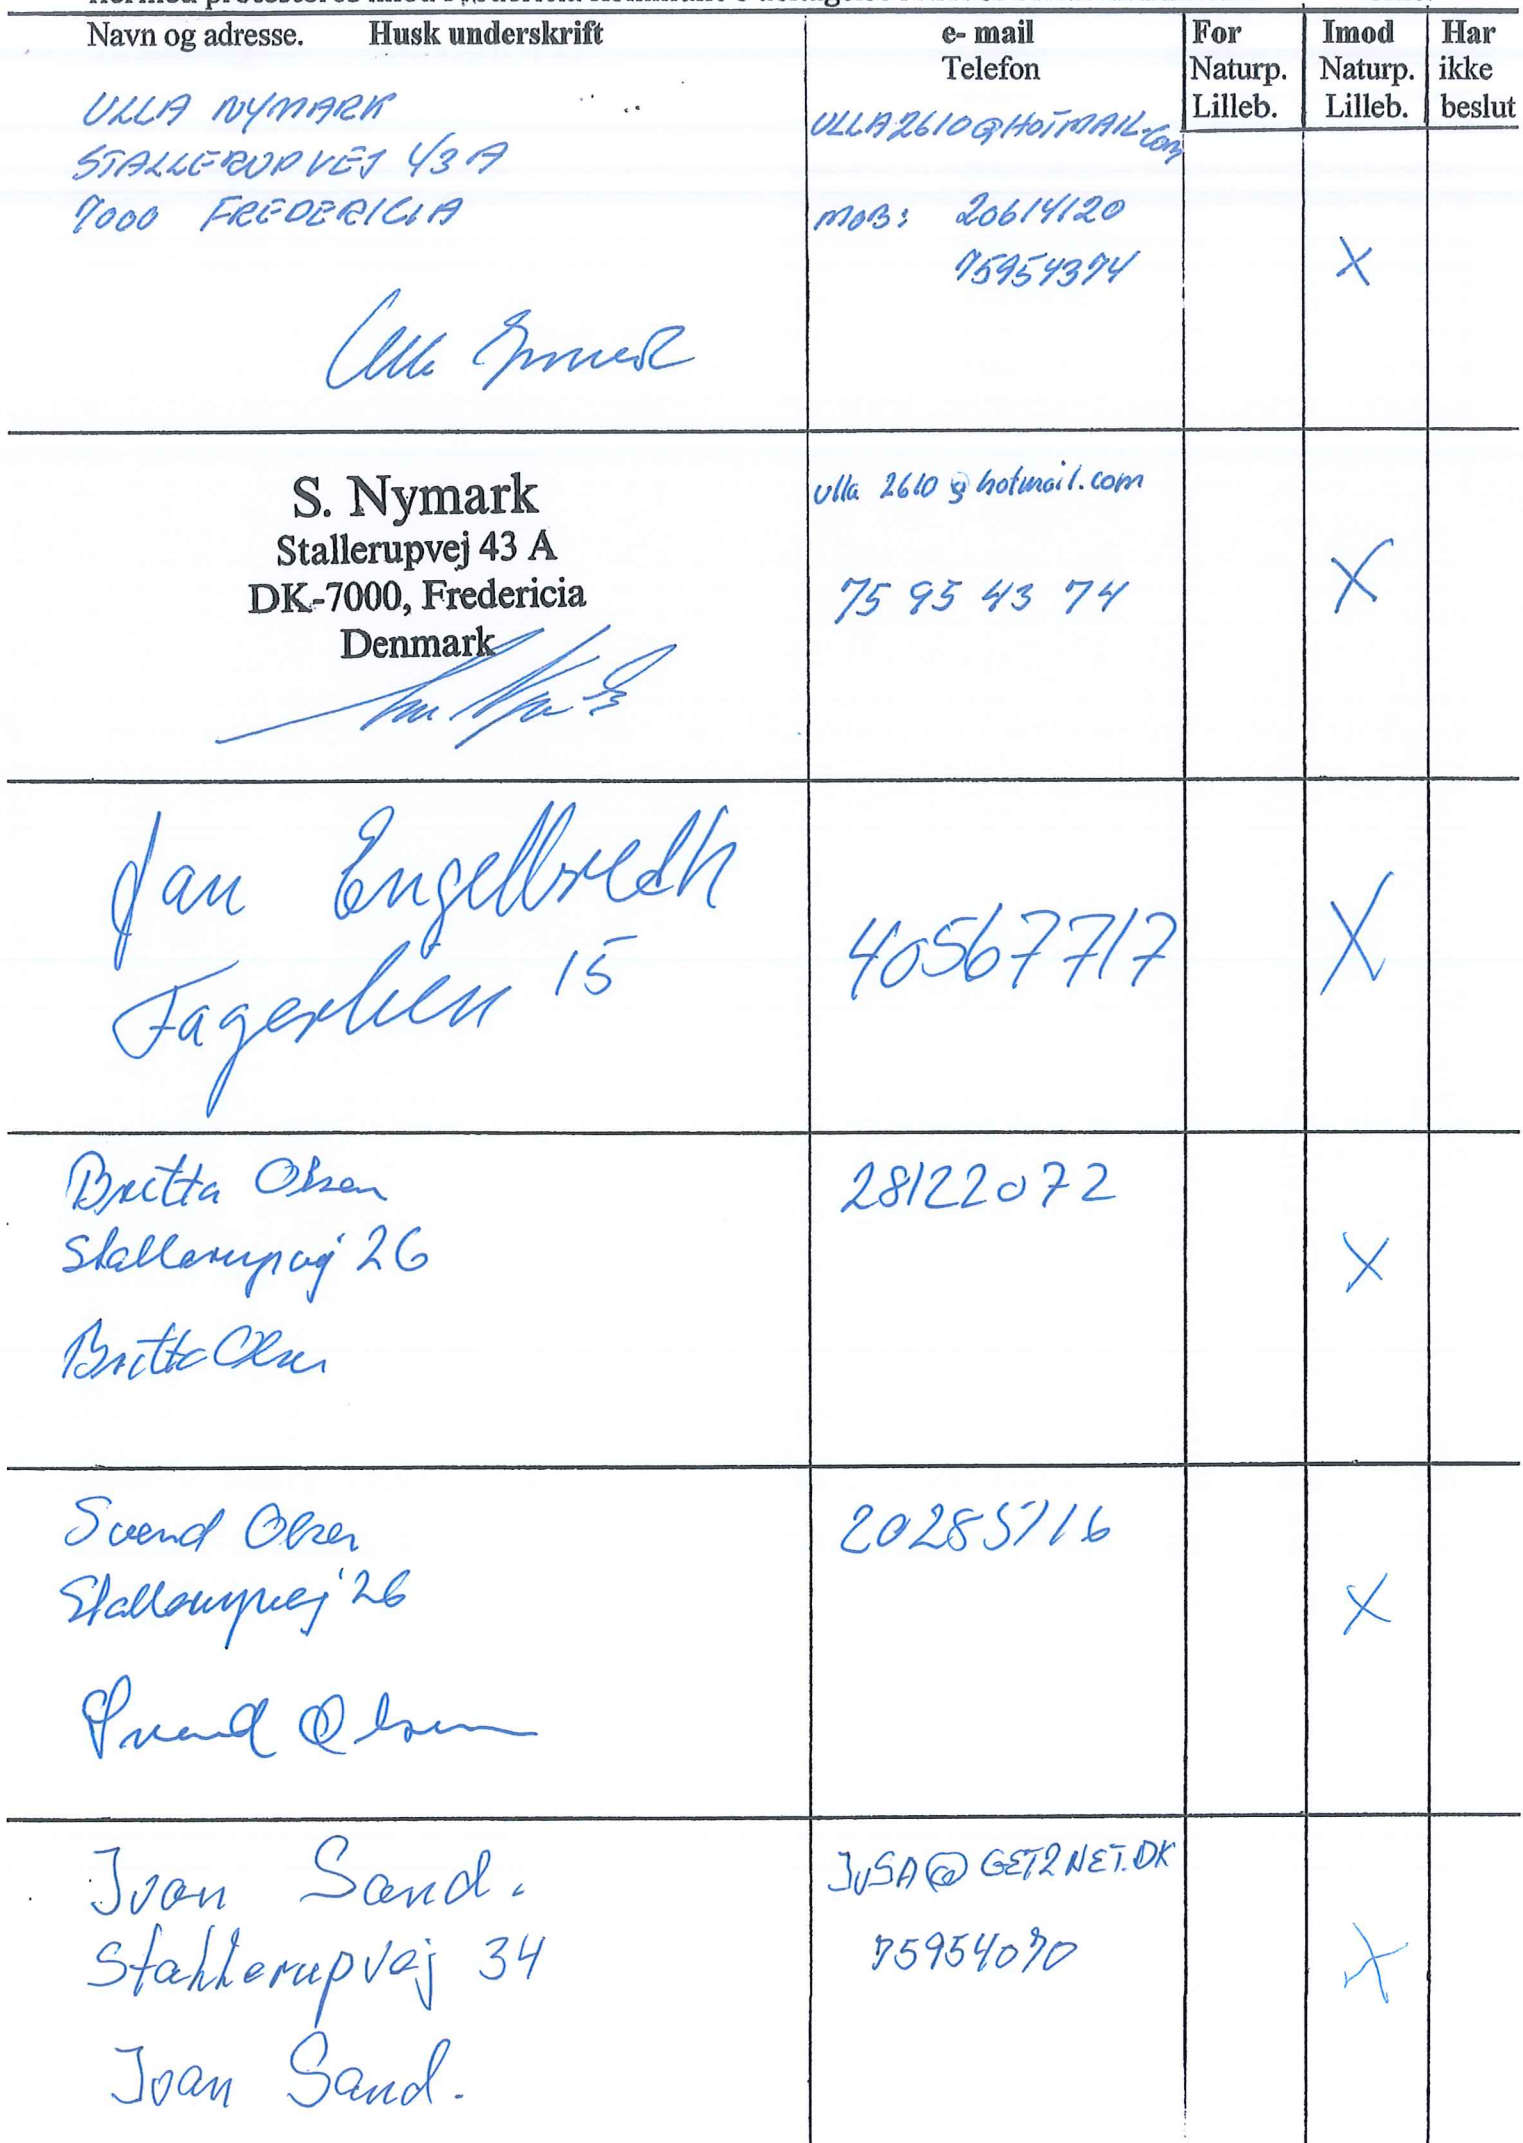 Navn og adresse. Husk underskrift
e- mail
Telefon
For
Naturp.
Lilleb.
Imod
Naturp.
Lilleb.
Har
ikke
beslut
ULLA NYMARK
STALLERUPVEJ 43 A
7000 FREDERICIA
ULLA2610@HOTMAIL.com
MOB: 20614120
75954374
X
S. Nymark
Stallerupvej 43 A
DK-7000, Fredericia
Denmark
ulla 2610@hotmail.com
75 95 43 74
X
Jan Engelbredh
15
40567717
X
Britta Olsen
Stallerupvej 26
Britta Olsen
28122072
X
Svend Olsen
Stallerupvej 26
Svend Olsen
20285716
X
Ivan Sand.
Stallerupvej 34
Ivan Sand.
JVSA@GET2NET.DK
75954070
X